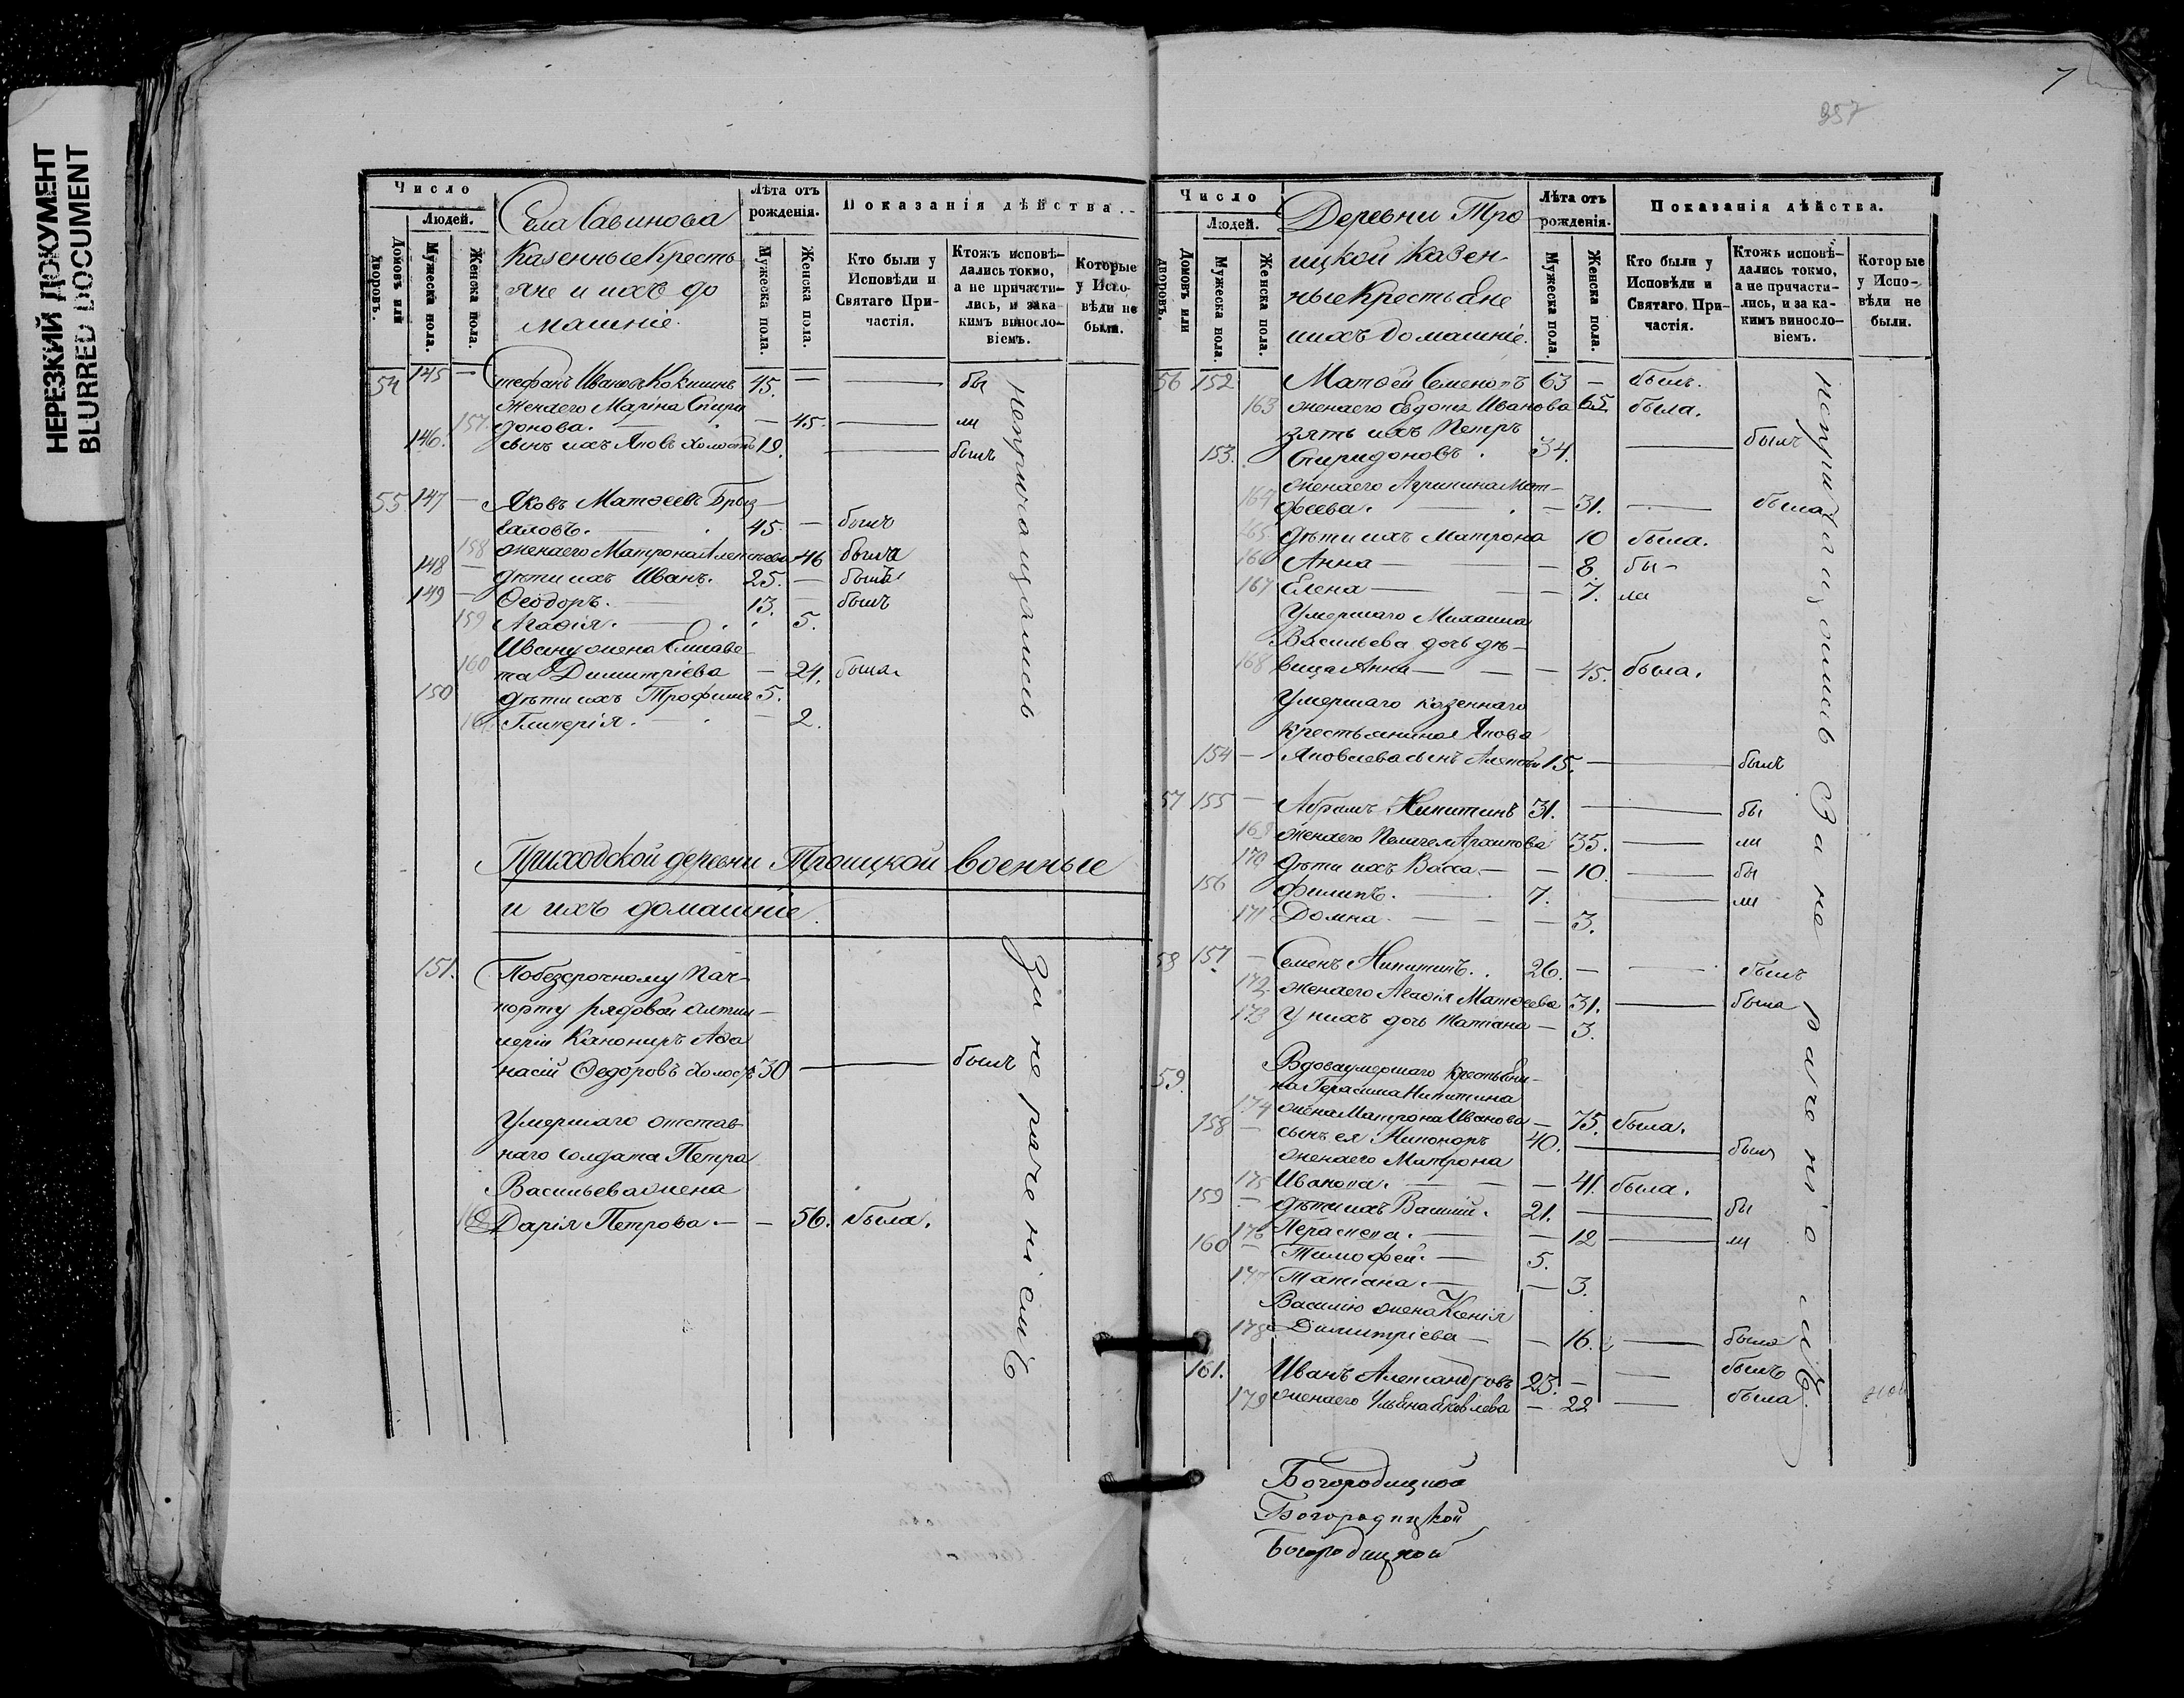 НЕРЕЗКИЙ ДОКУМЕНТ
BLURRED DOCUMENT
Число
Людей.
Домовъ или дворовъ.
Мужеска пола.
Женска пола.
Села Савинова
Казенные Кресть
яне и ихъ до
машніе.
Лѣта отъ рожденія.
Мужеска пола.
Женска пола.
Показанія дѣйства.
Кто были у Исповѣди и Святаго Причастія.
Ктожъ исповѣдались токмо, а не причастились, и за какимъ винословіемъ.
Которые у Исповѣди не были.
54 145 — Стефанъ Ивановъ Кокшинъ 45. — — бы
жена его Марина Спири
157. донова. — 45. — ли
146. сынъ ихъ Яковъ холостъ 19. — былъ
55 147 — Яковъ Матѳеевъ Брыз
галовъ. — 45. — былъ
158 жена его Матрона Алексѣева 46 была
148 — дѣти ихъ Иванъ. 25. — былъ
149 — Ѳеодоръ. — 13. — былъ
159 Агаѳія. — 5.
Ивану жена Елисаве
160 та Димитріева — 24. была
150 дѣти ихъ Трофимъ 5.
161. Гликерія. — — 2.
не причащались
Приходской деревни Троицкой военные
и ихъ домашніе.
151. По безсрочному пач
порту рядовой артил
леріи Канониръ Аѳа
насій Ѳедоровъ холостъ 30 — — былъ
Умершаго отстав
наго солдата Петра
Васильева жена
162 Дарія Петрова. — — 56. была.
За нераченіемъ
7
357
Число
Людей.
Домовъ или дворовъ.
Мужеска пола.
Женска пола.
Деревни Тро
ицкой Казен
ные Крестьяне
и ихъ домашніе.
Лѣта отъ рожденія.
Мужеска пола.
Женска пола.
Показанія дѣйства.
Кто были у Исповѣди и Святаго Причастія.
Ктожъ исповѣдались токмо, а не причастились, и за какимъ винословіемъ.
Которые у Исповѣди не были.
56 152 Матѳей Семеновъ 63 — былъ.
163 жена его Евдокія Иванова 65 была.
зять ихъ Петръ
153. Спиридоновъ. 34. — былъ
жена его Агрипина Мат
164 феева. — — 31. — была
165 дѣти ихъ Матрона 10 была.
166 Анна — — 8. бы
167 Елена — — 7. ли
Умершаго Михаила
Васильева дочь дѣ
168 вица Анна — — 45. была.
Умершаго казеннаго
крестьянина Якова
154 — Яковлева сынъ Алексѣй 15. — — былъ
57 155 — Абрамъ Никитинъ 31. — — бы
169 жена его Пелагея Архипова 35. — ли
170 дѣти ихъ Васса — — 10. — бы
156 Филипъ. 7. — ли
171 Домна. — — 3.
58 157 — Семенъ Никитинъ. 26. — — былъ
172 жена его Агаѳія Матѳеева 31. — была
173 У нихъ дочь Татіана — 3.
59. Вдова умершаго крестьяни
на Герасима Никитина
174 жена Матрона Иванова — 75. была.
158 — сынъ ея Никоноръ 40. — былъ
жена его Матрона
175 Иванова. — — 41. была.
159 — дѣти ихъ Василій. 21. — бы
176 Параскева. — — 12 — ли
160 — Тимофей. — 5.
177 Татіана. — — 3.
Василію жена Ксенія
178 Димитріева — — 16. — была
161. Иванъ Александровъ 23. — — былъ
179 жена его Ульяна Яковлева — 22 — была
не причащались За нераченіемъ
Богородицкой
Богородицкой
Богородицкой